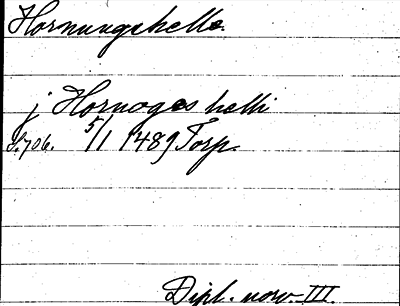 Hornungshelle.
j Hornoges helli
S. 706. 5/1 1489 Torp.
Dipl. norv. III.